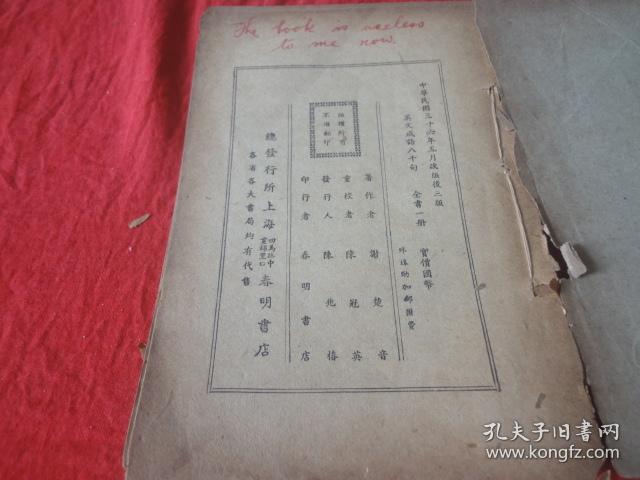 The book is useless
to me now.
中華民國三十六年三月改版後三版
英文成語八千句 全書一冊
實價國幣
外埠酌加郵匯費
著作者 謝楚音
重校者 陳冠英
發行人 陳兆椿
印行者 春明書店
版權所有
不准翻印
總發行所上海四馬路中 春明書店
各省各大書局均有代售
孔夫子旧书网
www.kongfz.com